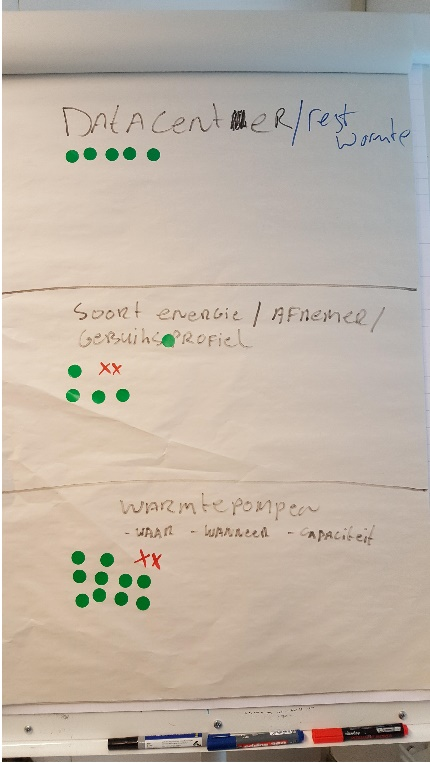 DATACENTER/rest
warmte
Soort energie / AFnemer/
GebruiksPROFiel
xx
WARMtepompen
- WAAR - WANNEER - CAPACiteit
xx